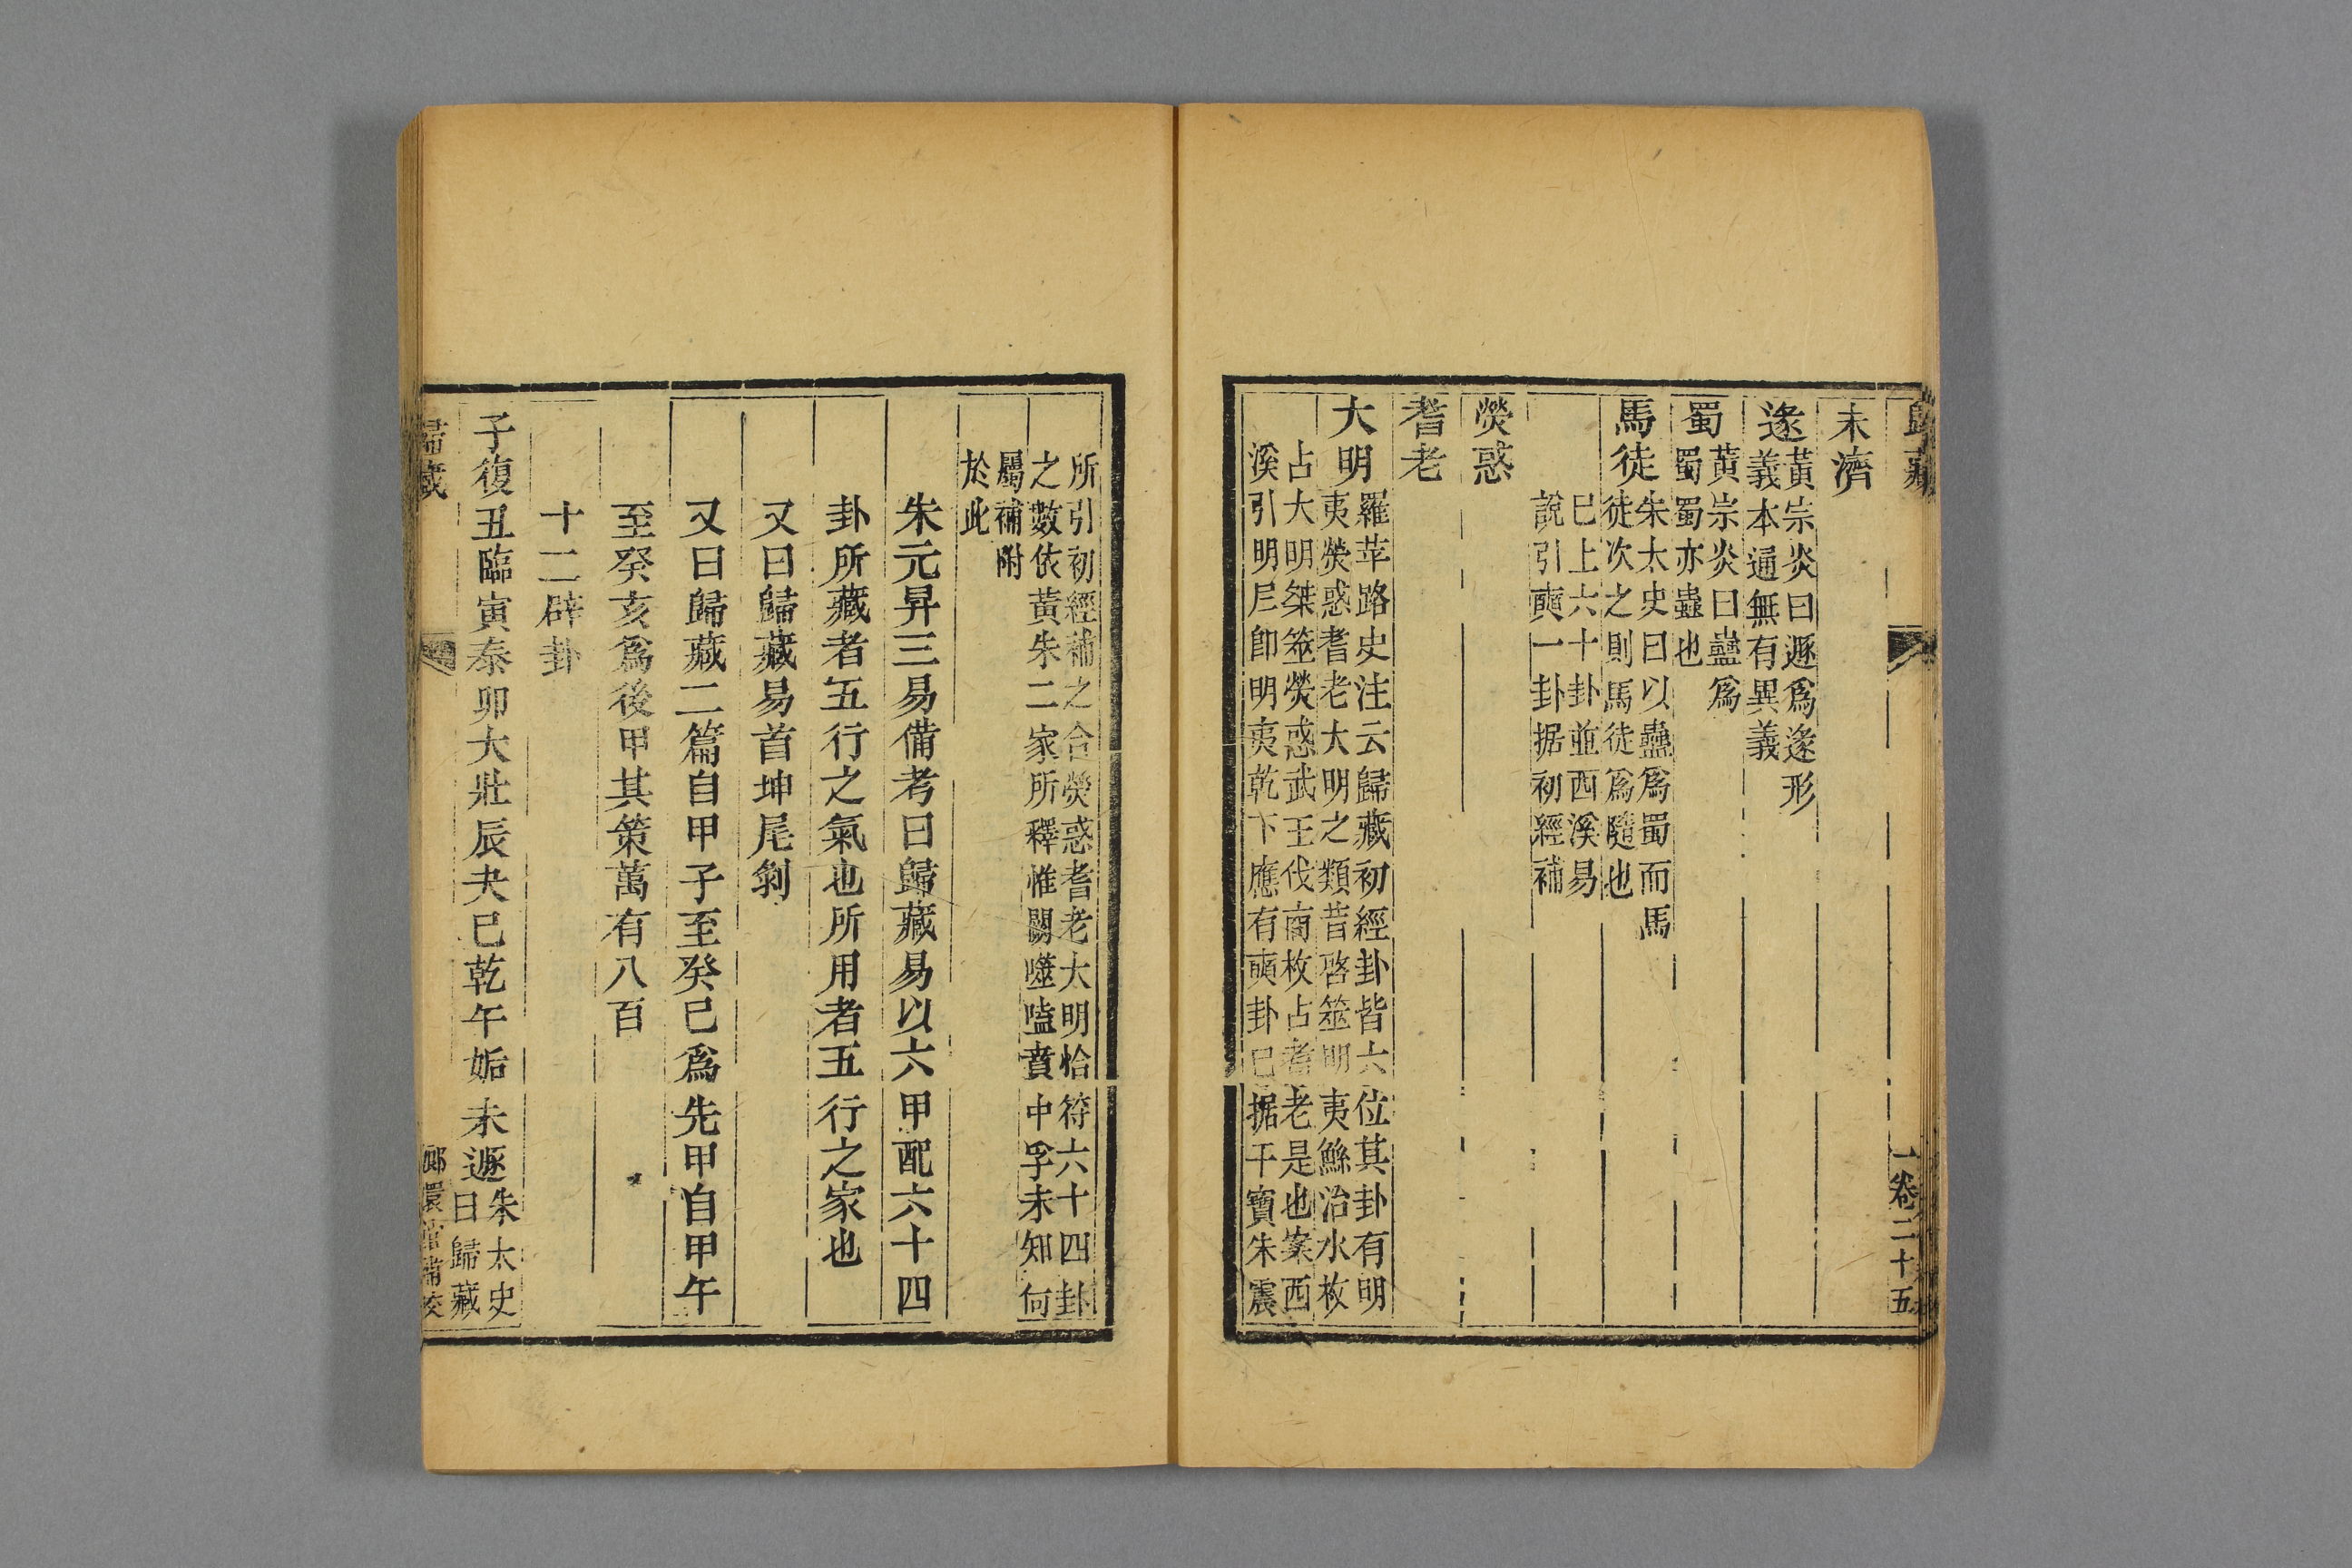 歸藏
一卷二十五
未濟
遂黃宗炎曰遯爲遂形
義本通無有異義
蜀黃宗炎曰蠱爲
蜀蜀亦蠱也
馬徒朱太史曰以蠱爲蜀而馬
徒次之則馬徒爲隨也
巳上六十卦並西溪易
說引奭一卦据初經補
熒惑
耆老
大明羅苹路史注云歸藏初經卦皆六位其卦有明
夷熒惑耆老大明之類昔啓筮明夷鯀治水枚
占大明桀筮熒惑武王伐商枚占耆老是也案西
溪引明𡰥卽明夷乾下應有奭卦巳据干寶朱震
所引初經補之合熒惑耆老大明恰符六十四卦
之數依黃朱二家所釋惟闕噬嗑賁中孚未知何
屬補附
於此
朱元昇三易備考曰歸藏易以六甲配六十四
卦所藏者五行之氣也所用者五行之家也
又曰歸藏易首坤尾剝
又曰歸藏二篇自甲子至癸巳爲先甲自甲午
至癸亥爲後甲其策萬有八百
十二辟卦
子復丑臨寅泰卯大壯辰夬巳乾午姤未遯朱太史
曰歸藏
歸藏
嫏嬛館補校